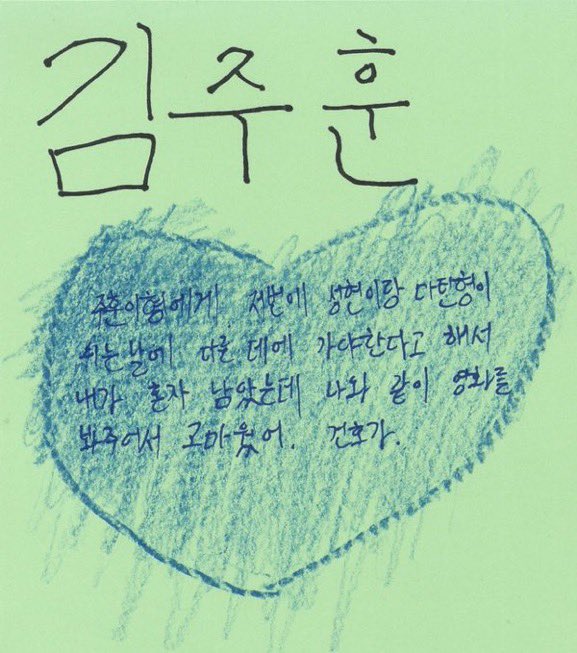 김주훈
주훈이형에게. 저번에 성현이랑 다틴형이
쉬는날에 다른 데에 가야한다고 해서
내가 혼자 남았는데 나와 같이 영화를
봐주어서 고마웠어. 건호가.